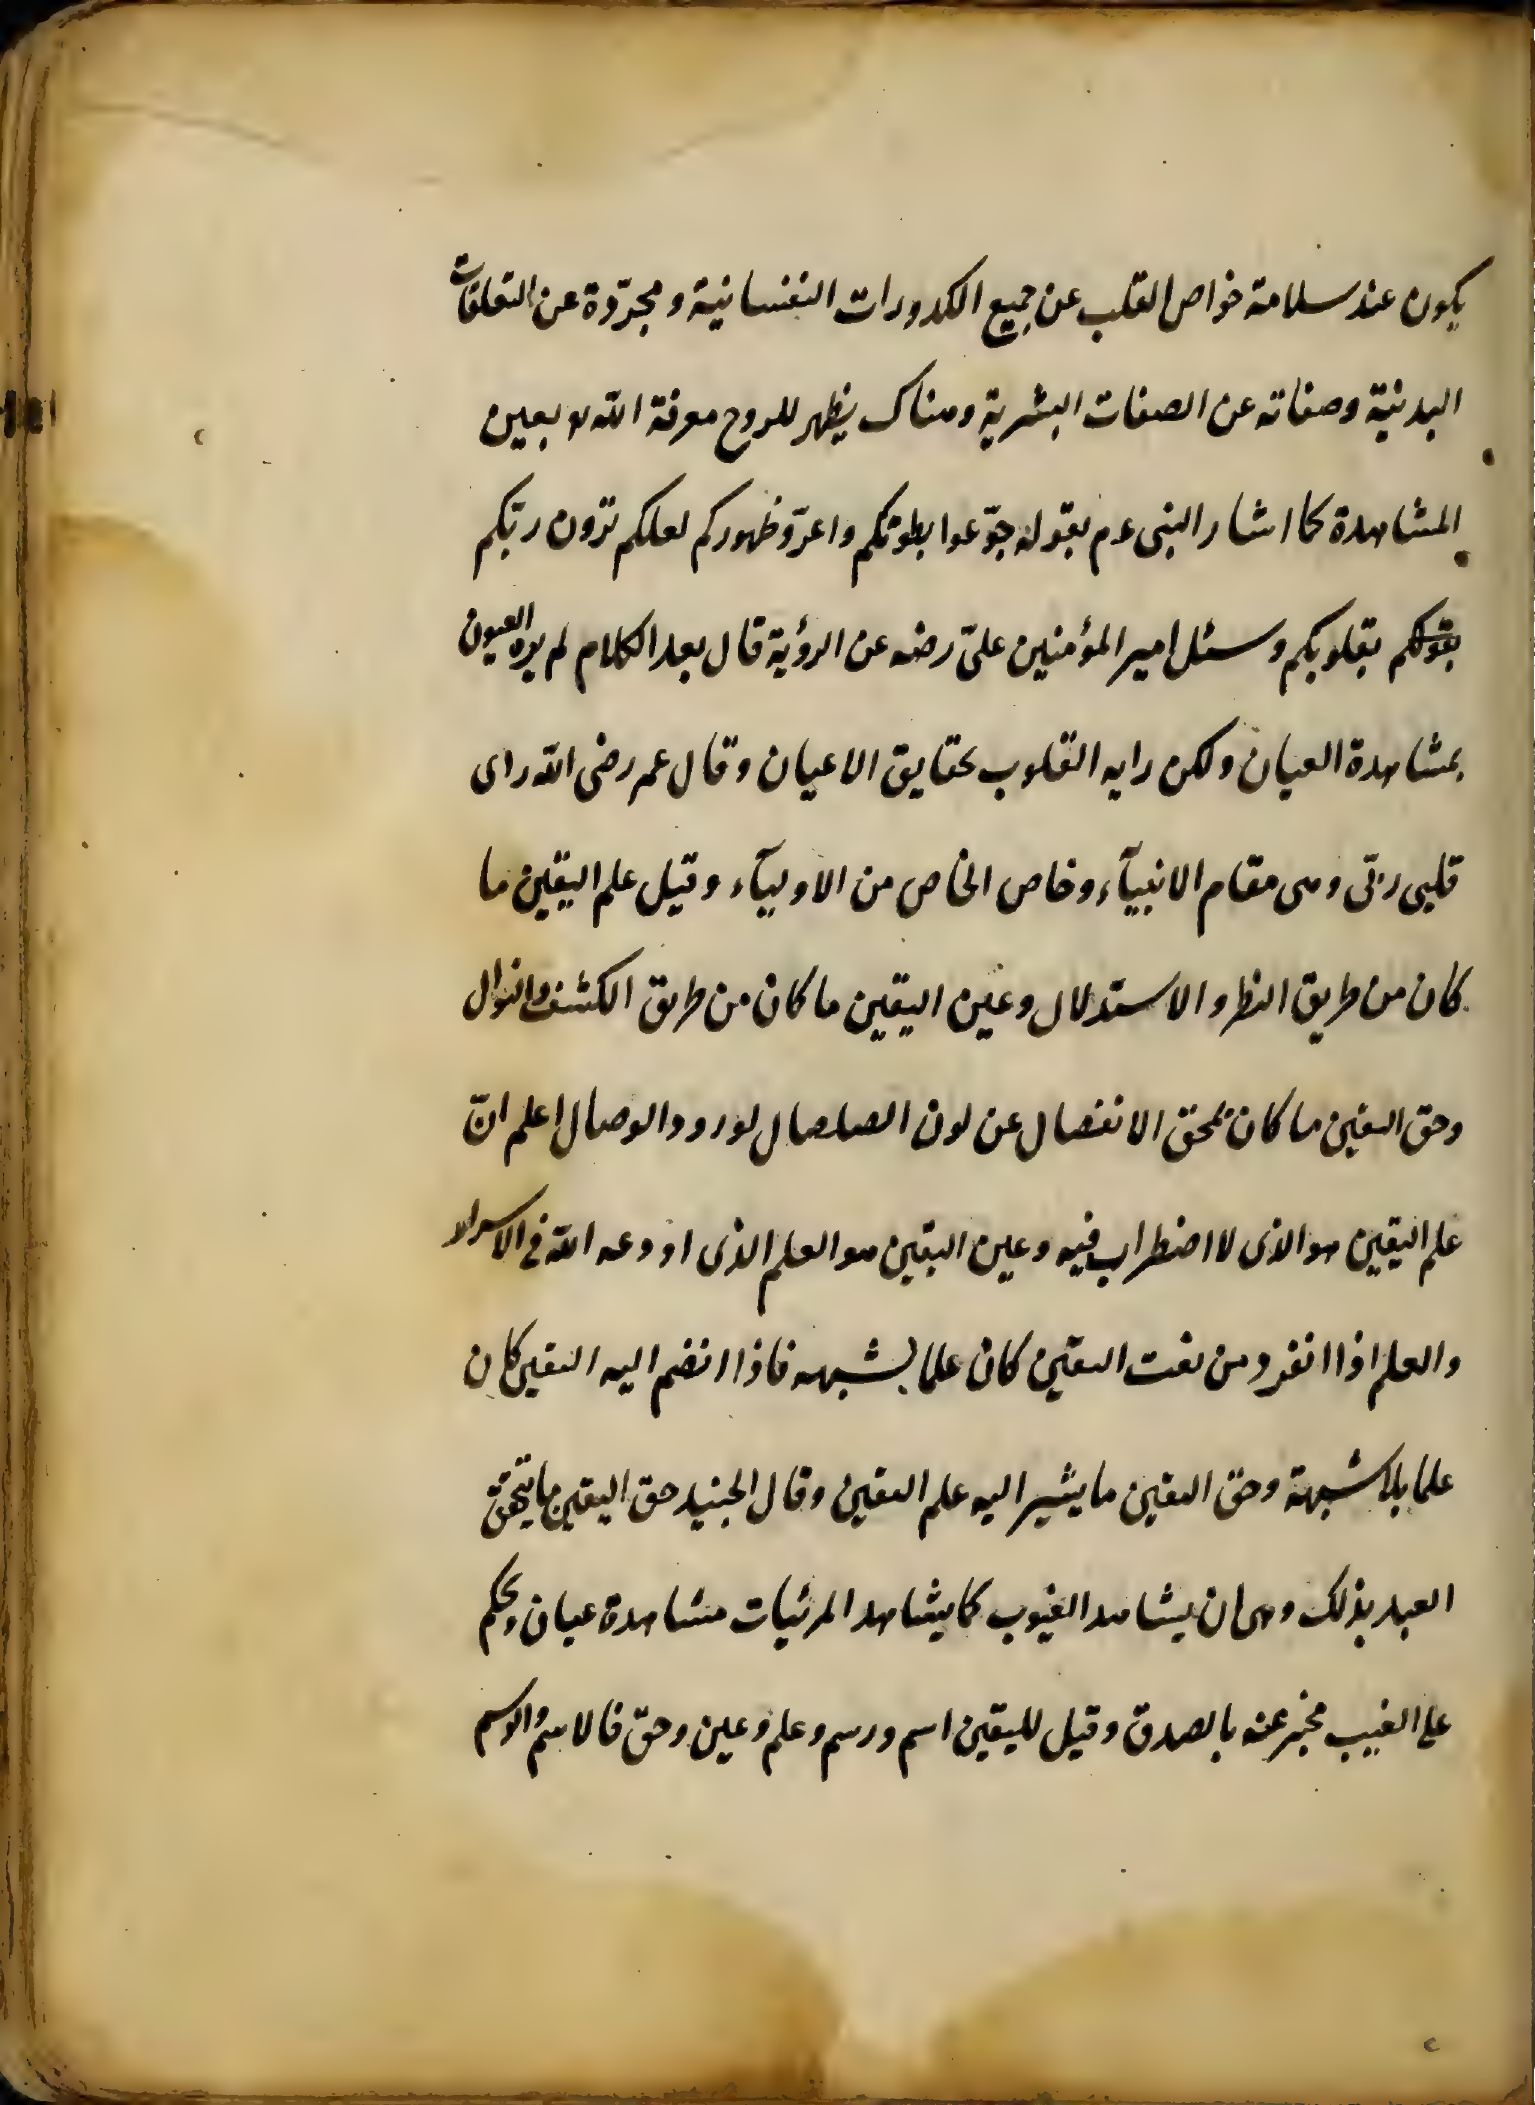 يكون عند سلامة خواص القلب عن جميع الكدورات النفسانية ومجرّدة عن التعلقات
البدنية وصفاته عن الصفات البشرية وهناك يظهر للروح معرفة الله لا بعين
المشاهدة كما اشار النبى عم بقوله جوّعوا بطونكم واعرّو ظهوركم لعلكم ترون ربّكم
بقلوبكم وسئل امير المؤمنين علىّ رضه عن الرؤية قال بعد الكلام لم يره العيون
بمشاهدة العيان ولكن رايه القلوب بحقايق الاعيان وقال عمر رضى الله راى
قلبى ربّى وهى مقام الانبيآء وخاص الخاص من الاوليآء وقيل علم اليقين ما
كان من طريق النظر والاستدلال وعين اليقين ما كان من طريق الكشف والنوال
وحق اليقين ما كان بمحق الانفصال عن لون الصلصال لورود الوصال اعلم انّ
علم اليقين هو الذى لا اضطراب فيه وعين اليقين هو العلم الذى اودعه الله فى الاسرار
والعلم اذا انفرد من نعت اليقين كان علما بشبهه فاذا انضم اليه اليقين كان
علما بلا شبهة وحق اليقين ما يشير اليه علم اليقين وقال الجنيد حق اليقين ما يتحقق
العبد بذلك وهى ان يشاهد الغيوب كما يشاهد المرئيات مشاهدة عيان ويحكم
على الغيب مخبر عنه بالصدق وقيل لليقين اسم ورسم وعلم وعين وحقّ فالاسم والرسم